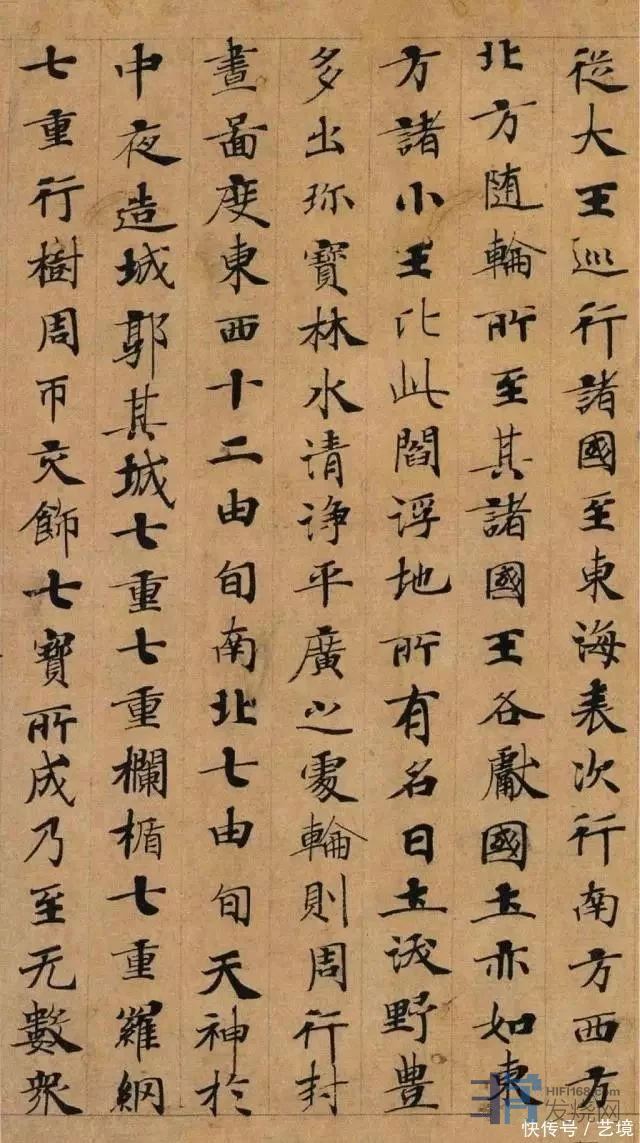 從大王巡行諸國至東海表次行南方西方
北方随輪所至其諸國王各獻國土亦如東
方諸小王比此閻浮地所有名曰土沃野豊
多出珎寶林水清淨平廣之處輪則周行封
畫啚度東西十二由旬南北七由旬天神於
中夜造城郭其城七重七重欄楯七重羅網
七重行樹周帀交飾七寶所成乃至无數衆
HIFI168.com
发烧网
快传号/艺境